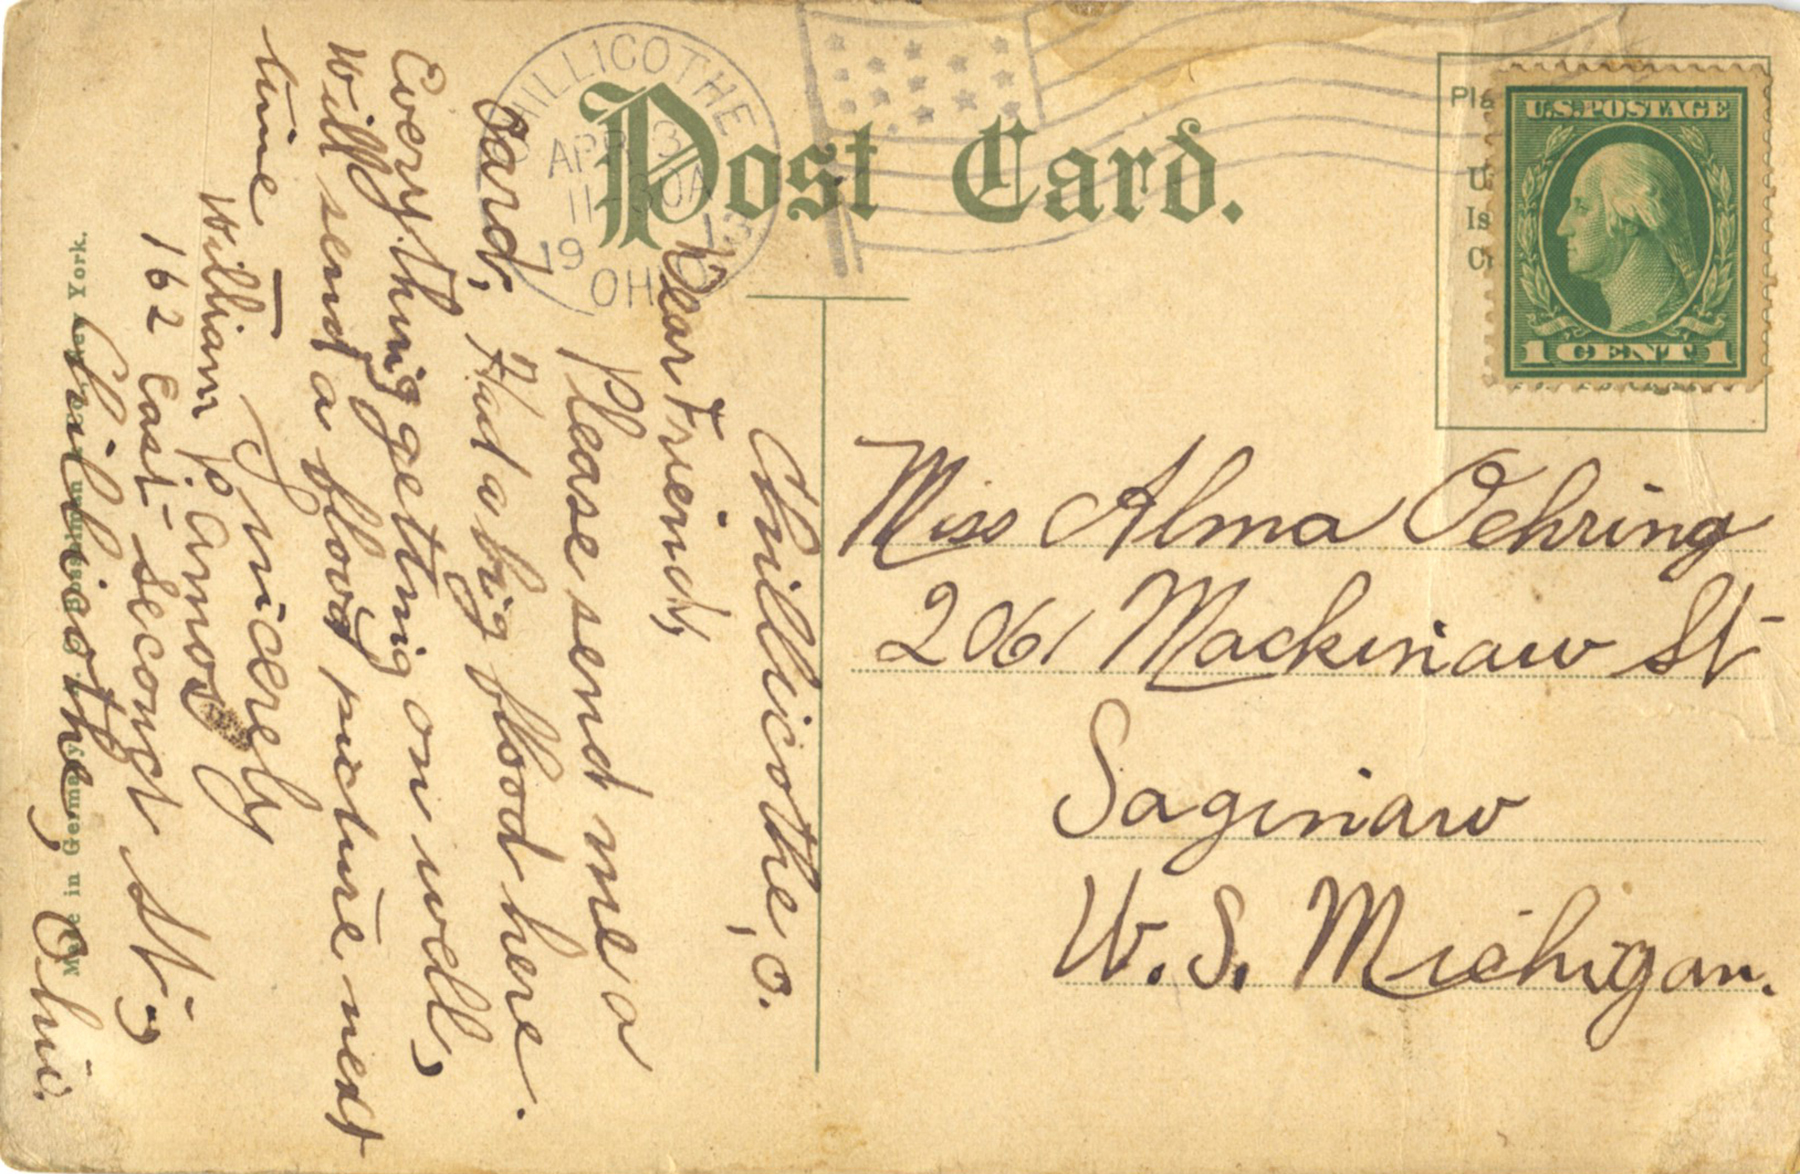 Post Card.
CHILLICOTHE
APR 3
11-30A
19 13
OHIO
U.S. POSTAGE
1 CENT 1
Chillicothe, O.
Dear Friend,
Please send me a
Card, Had a big flood here.
Everything getting on well,
Will send a flood picture next
time
Yours Sincerely
William P. Amos
162 East Second St.,
Chillicothe, Ohio.
Miss Alma Oehring
2061 Mackinaw St
Saginaw
W. S. Michigan.
Made in Germany
York.